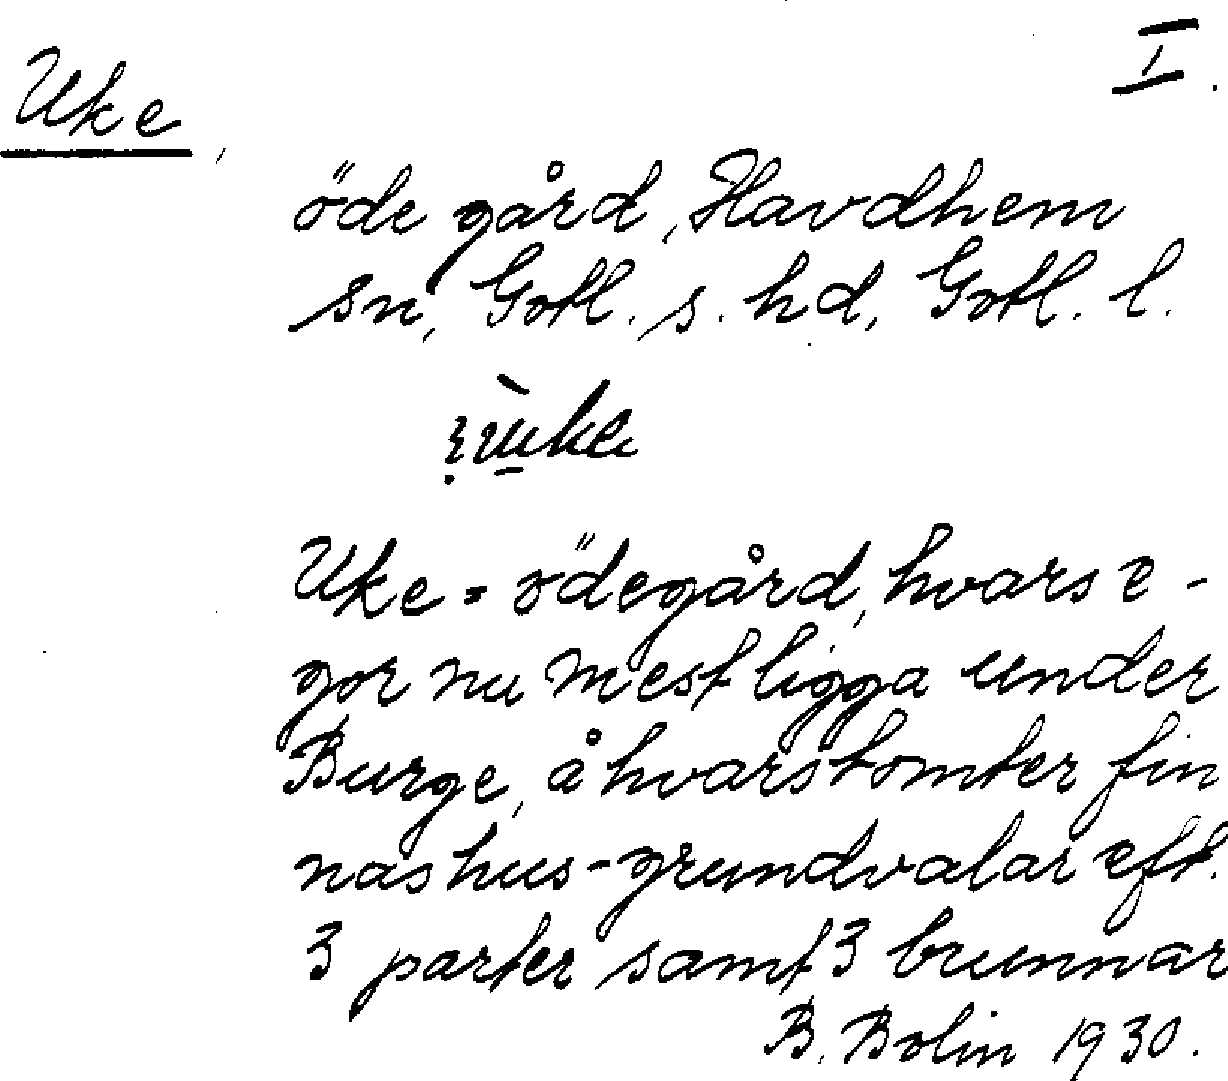 I.
Uke,
öde gård, Havdhem
sn, Gotl. s. hd, Gotl. l.
Uke = ödegård, hvars e-
gor nu mest ligga under
Burge, å hvars tomter fin
nas hus-grundvalar eft.
3 parter samt 3 brunnar
B. Bolin 1930.